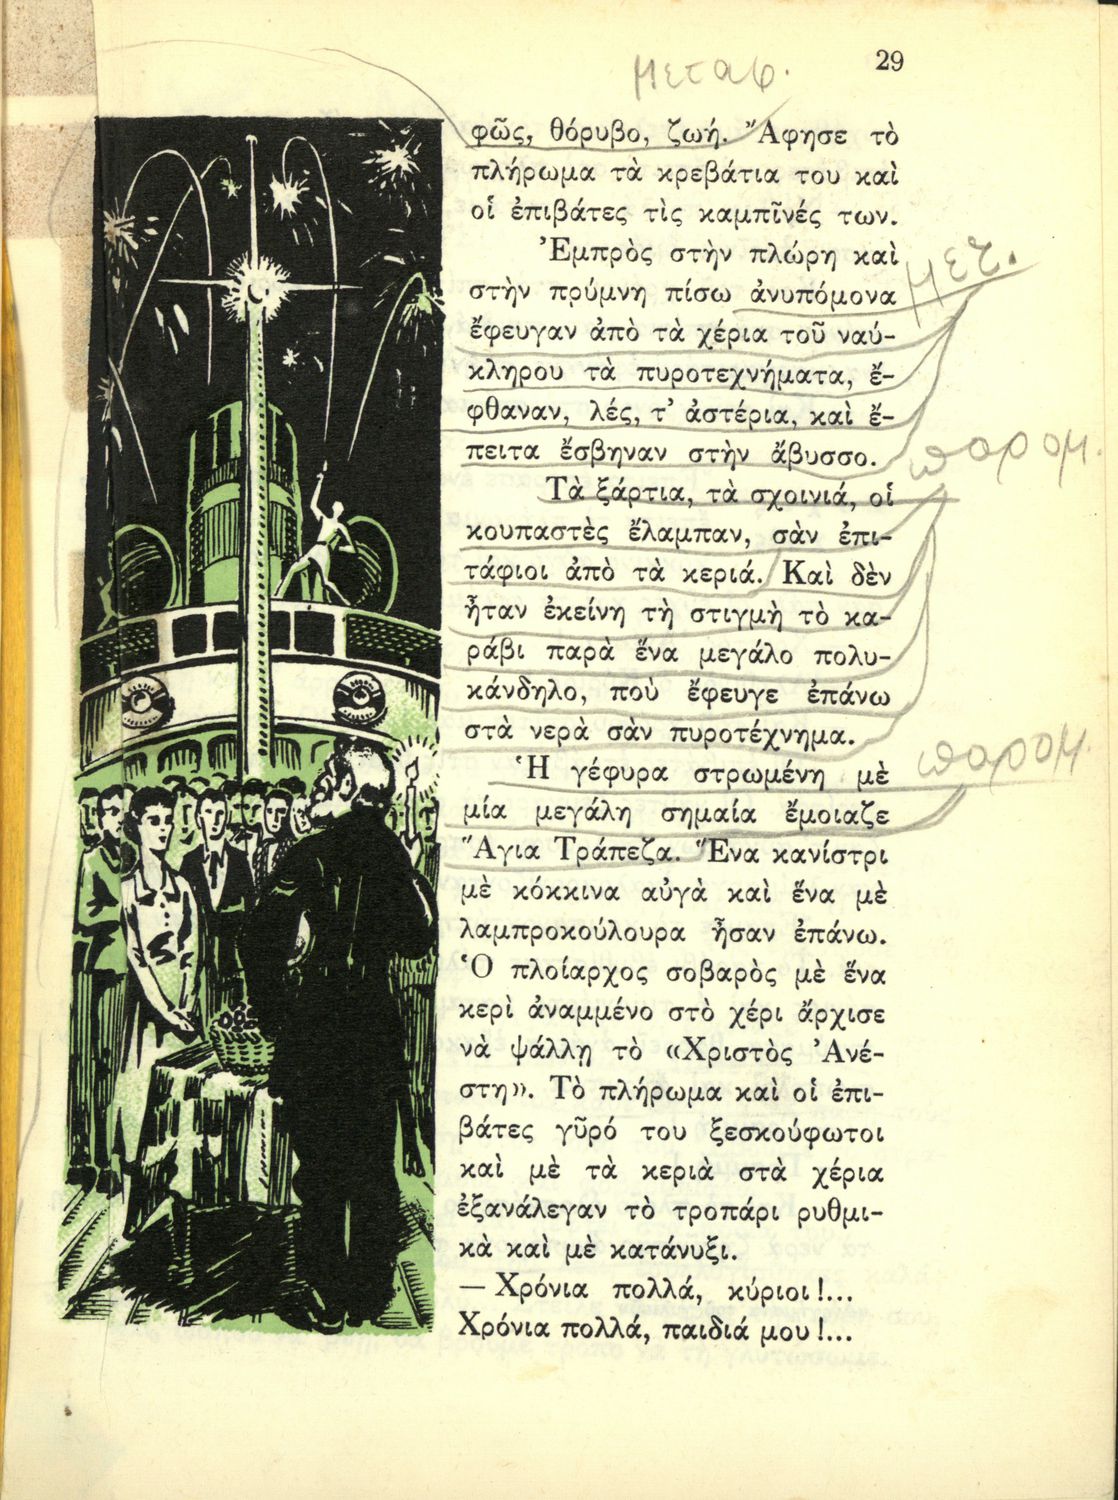 29
μεταφ.
φῶς, θόρυβο, ζωή. Ἄφησε τὸ
πλήρωμα τὰ κρεβάτια του καὶ
οἱ ἐπιβάτες τὶς καμπῖνές των.
Ἐμπρὸς στὴν πλώρη καὶ
στὴν πρύμνη πίσω ἀνυπόμονα
μετ.
ἔφευγαν ἀπὸ τὰ χέρια τοῦ ναύ-
κληρου τὰ πυροτεχνήματα, ἔ-
φθαναν, λές, τ' ἀστέρια, καὶ ἔ-
πειτα ἔσβηναν στὴν ἄβυσσο.
παρομ.
Τὰ ξάρτια, τὰ σχοινιά, οἱ
κουπαστὲς ἔλαμπαν, σὰν ἐπι-
τάφιοι ἀπὸ τὰ κεριά. Καὶ δὲν
ἦταν ἐκείνη τὴ στιγμὴ τὸ κα-
ράβι παρὰ ἕνα μεγάλο πολυ-
κάνδηλο, ποὺ ἔφευγε ἐπάνω
στὰ νερὰ σὰν πυροτέχνημα.
παρομ.
Ἡ γέφυρα στρωμένη μὲ
μία μεγάλη σημαία ἔμοιαζε
Ἅγια Τράπεζα. Ἕνα κανίστρι
μὲ κόκκινα αὐγὰ καὶ ἕνα μὲ
λαμπροκούλουρα ἦσαν ἐπάνω.
Ὁ πλοίαρχος σοβαρὸς μὲ ἕνα
κερὶ ἀναμμένο στὸ χέρι ἄρχισε
νὰ ψάλλῃ τὸ «Χριστὸς Ἀνέ-
στη». Τὸ πλήρωμα καὶ οἱ ἐπι-
βάτες γῦρό του ξεσκούφωτοι
καὶ μὲ τὰ κεριὰ στὰ χέρια
ἐξανάλεγαν τὸ τροπάρι ρυθμι-
κὰ καὶ μὲ κατάνυξι.
— Χρόνια πολλά, κύριοι!...
Χρόνια πολλά, παιδιά μου!...